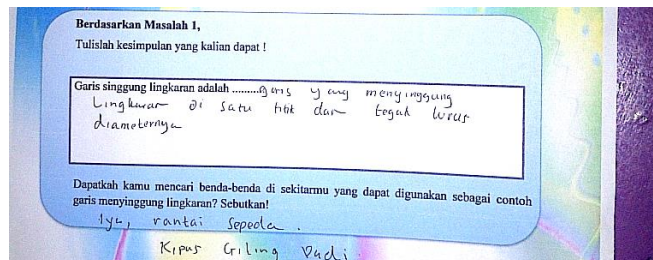 Berdasarkan Masalah 1,
Tulislah kesimpulan yang kalian dapat !
Garis singgung lingkaran adalah .........garis yang menyinggung
Lingkaran di satu titik dan tegak lurus
diameternya
Dapatkah kamu mencari benda-benda di sekitarmu yang dapat digunakan sebagai contoh
garis menyinggung lingkaran? Sebutkan!
Iya, rantai sepeda .
Kipas Giling Padi.